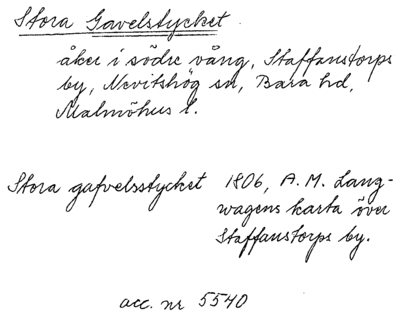 Stora Gavelstycket
åker i södre vång, Staffanstorps
by, Nevitshög sn, Bara hd,
Malmöhus l.
Stora gafvelsstycket 1806, A. M. Lang-
wagens karta över
Staffanstorps by.
acc. nr 5540